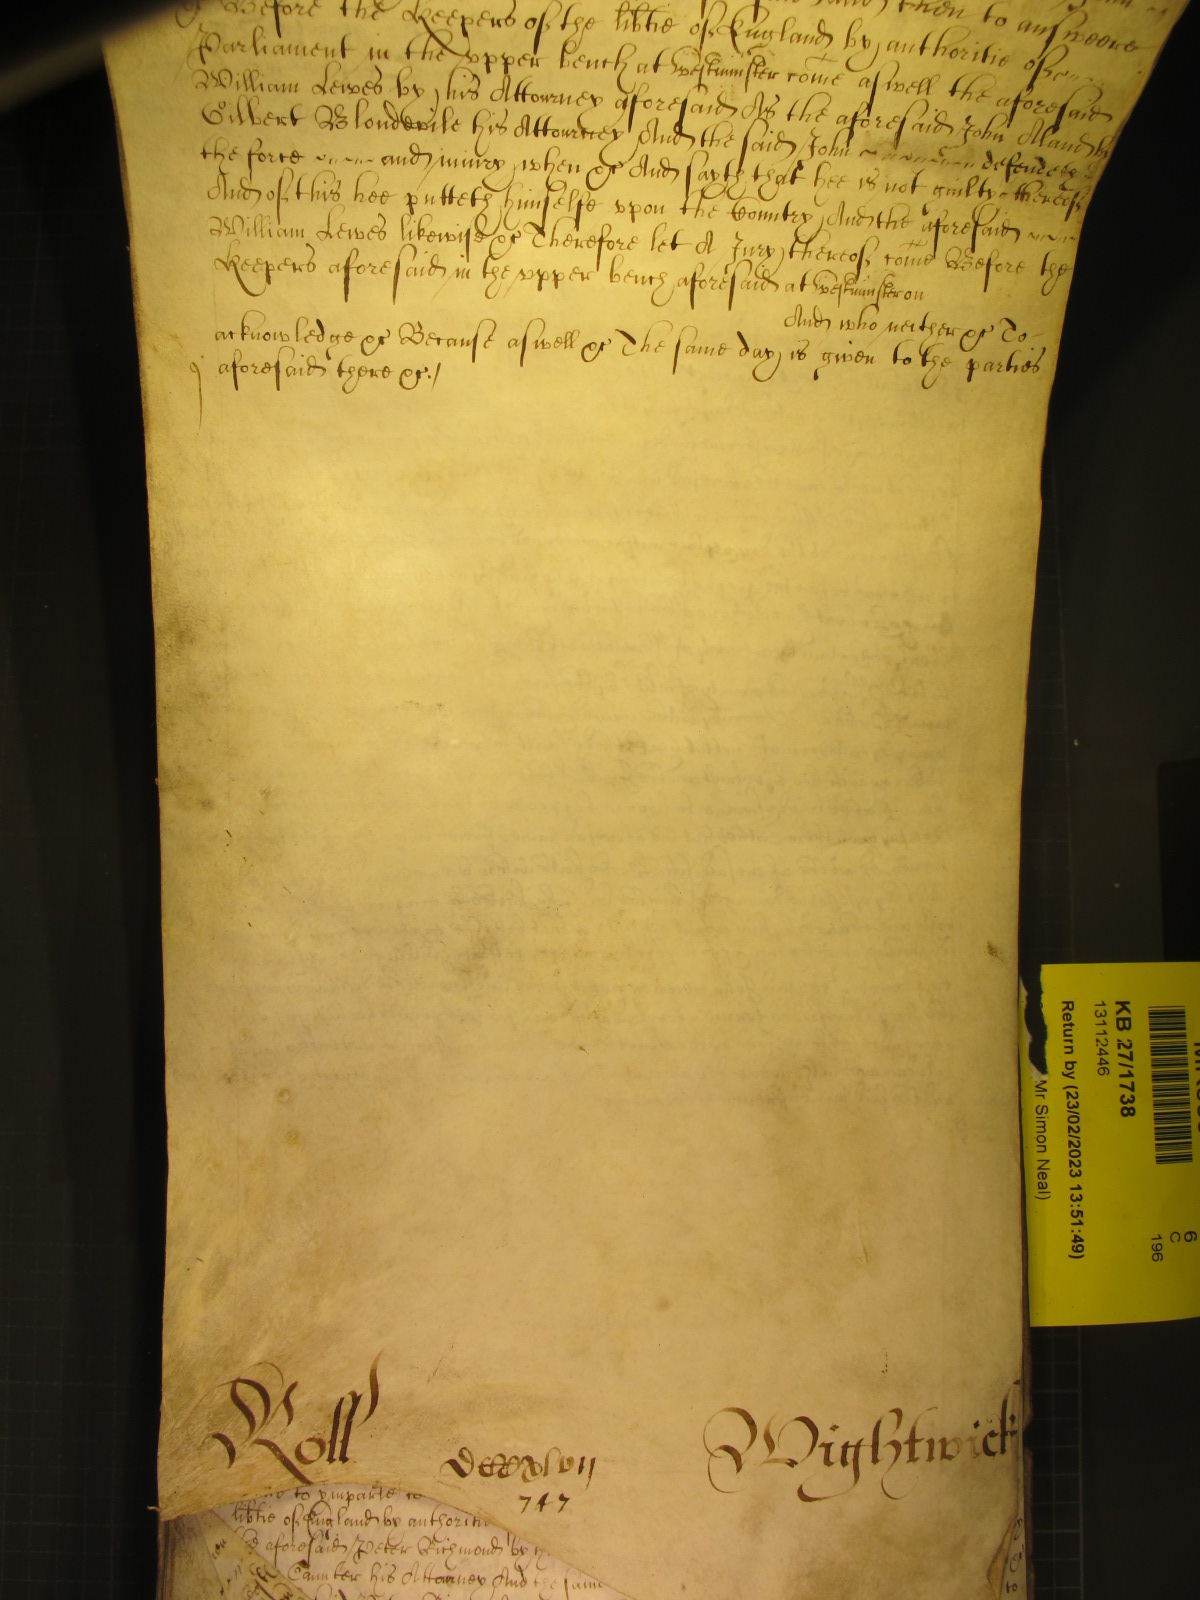 &c Before the Keepers of the lib̃tie of England by authoritie of
then to answeere
Parliament in the vpper bench at Westminster come aswell the aforesaid
William Lewes by his Attorney aforesaid As the aforesaid John Aland by
Gilbert Blondevile his Attorney And the said John defendeth
the force and iniury when &c And sayth that hee is not guilty thereof
And of this hee putteth himselfe vpon the Country And the aforesaid
William Lewes likewise &c Therefore let A Jury thereof come Before the
Keepers aforesaid in the vpper bench aforesaid at Westminster on
And who neither &c To
acknowledge &c Because aswell &c The same day is given to the parties
aforesaid there &c./
Roll
DCCxlvij
747
Wightwick
to imparle
lib̃tie of England by authoritie
aforesaid Peter Richmond by
Caunter his Attorney And the same
KB 27/1738
13112446
Return by (23/02/2023 13:51:49)
Mr Simon Neal)
6
C
196